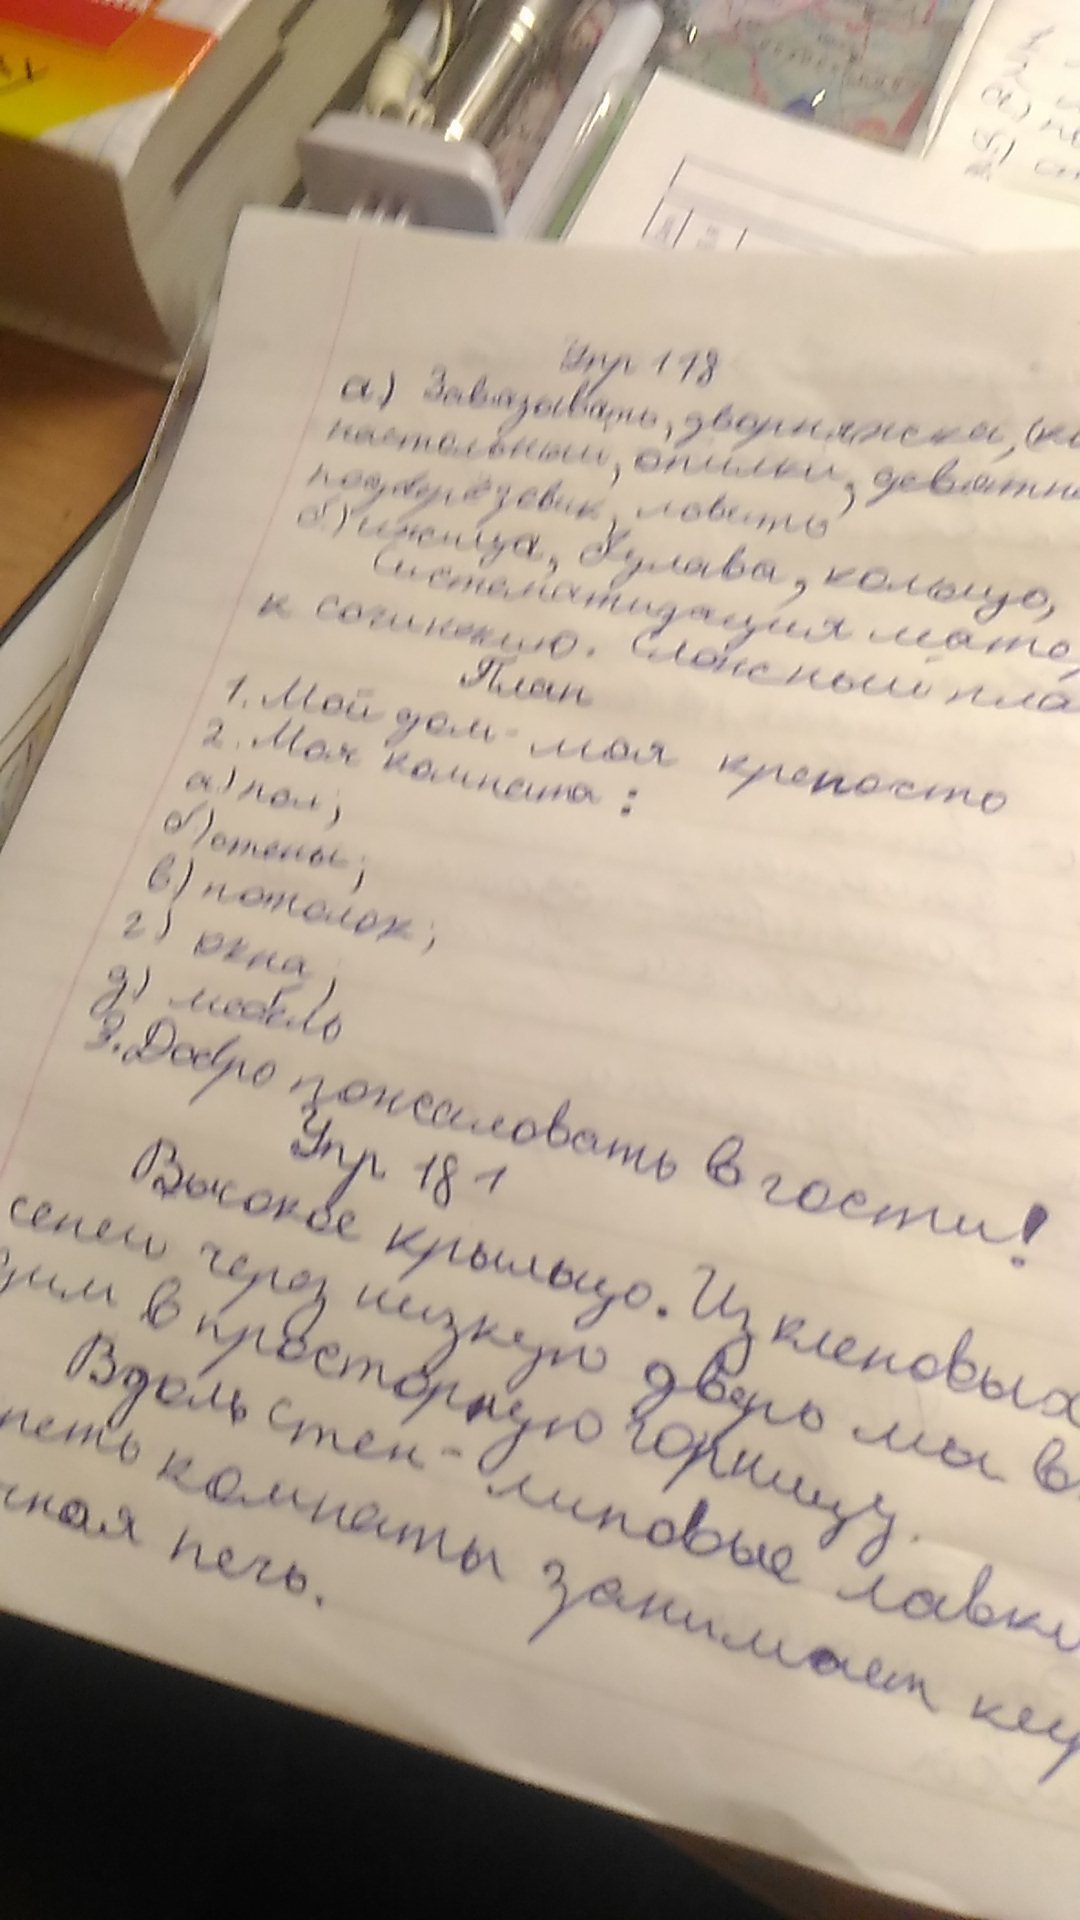 Упр 178
а) Завязывать, дворняжска, (ко
настольный, опилки, девятна
подберёзовик, ловить
б) ижица, булава, кольцо,
Систематизация мате
к сочинению. Сложный пла
План
1. Мой дом - моя крепость
2. Моя комната:
а) пол;
б) стены;
в) потолок;
г) окна;
д) мебель
3. Добро пожаловать в гости!
Упр 181
Высокое крыльцо. Из кленовых
сеней через низкую дверь мы в
дим в просторную горницу.
Вдоль стен - липовые лавки
петь комнаты занимает
чная печь.